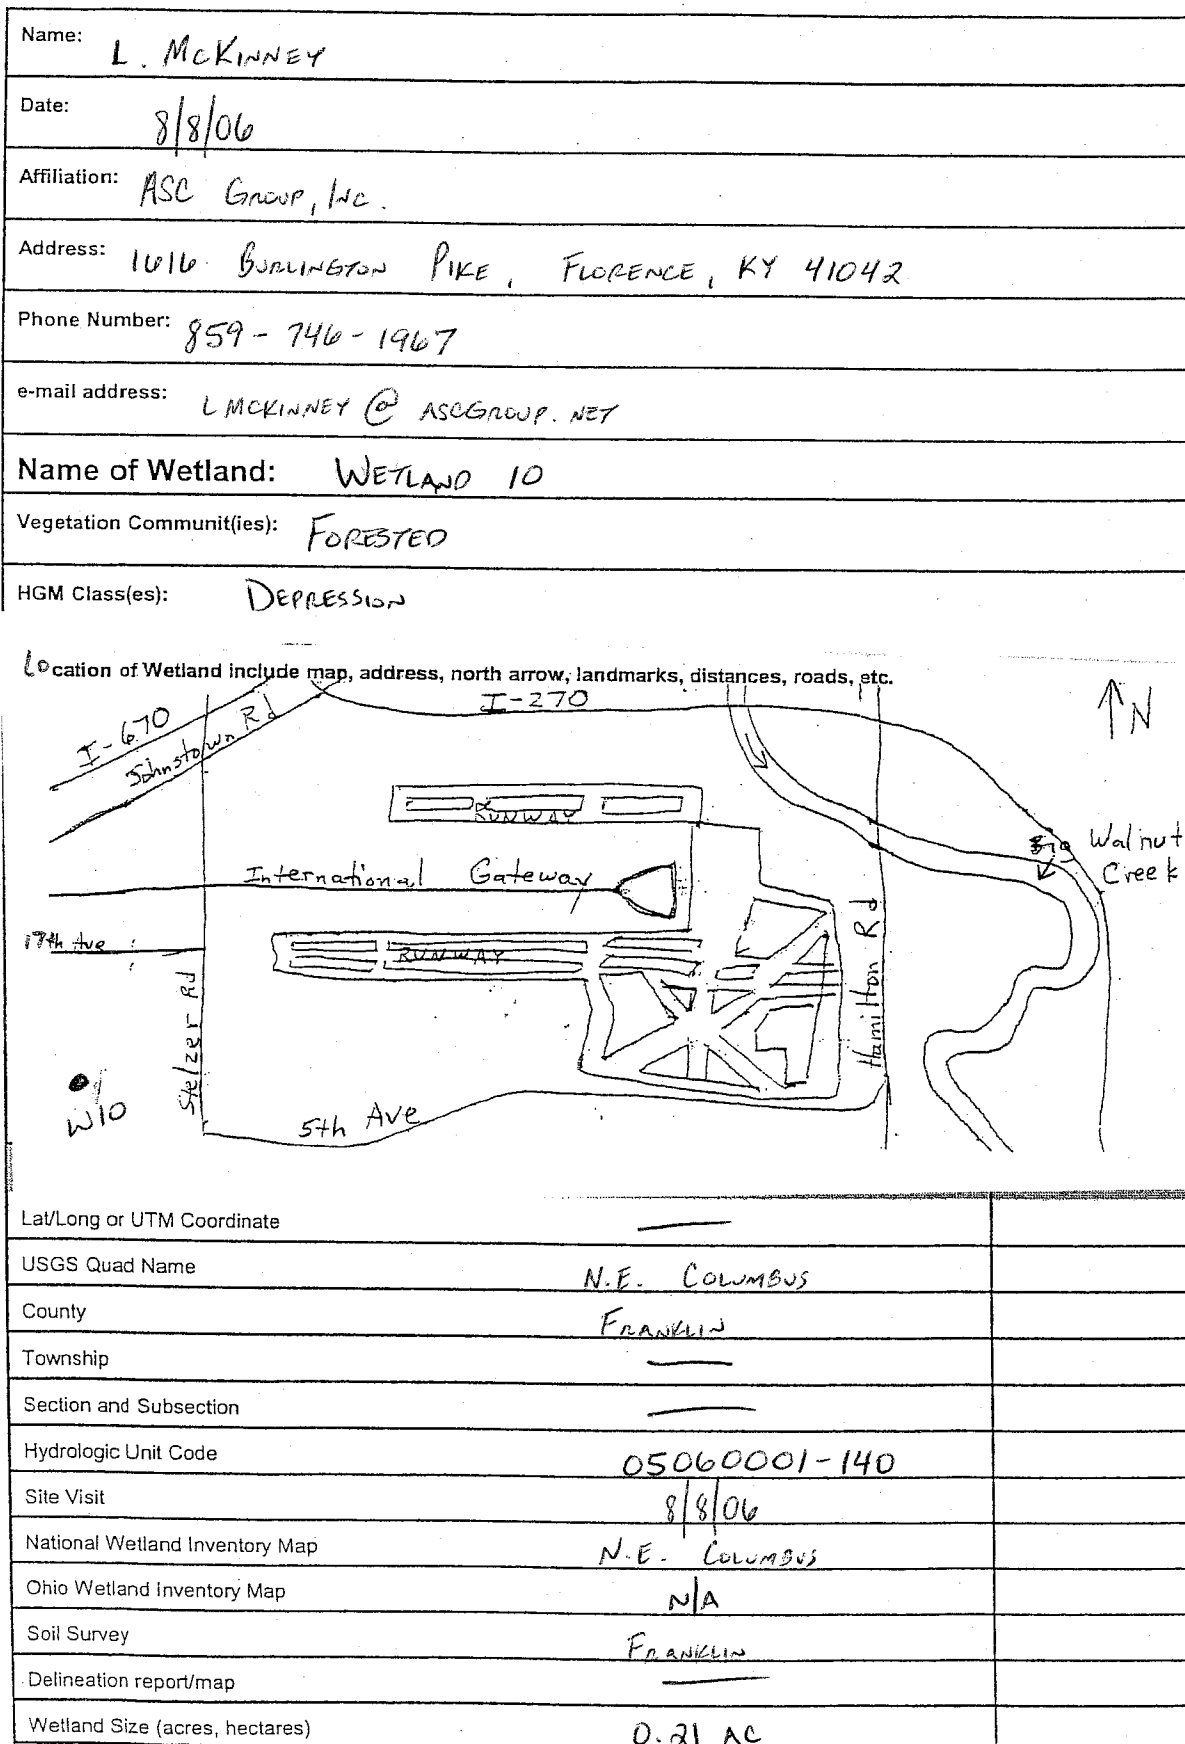 Name: L. McKinney
Date: 8/8/06
Affiliation: ASC Group, Inc.
Address: 1616 Burlington Pike, Florence, KY 41042
Phone Number: 859-746-1967
e-mail address: LMCKINNEY @ ASCGROUP.NET
Name of Wetland: WETLAND 10
Vegetation Communit(ies): FORESTED
HGM Class(es): DEPRESSION
Location of Wetland include map, address, north arrow, landmarks, distances, roads, etc.
I-670
Johnstown Rd
I-270
N
RUNWAY
Big Walnut
Creek
International Gateway
17th Ave
RUNWAY
Stelzer Rd
Hamilton Rd
W10
5th Ave
Lat/Long or UTM Coordinate —
USGS Quad Name N.E. COLUMBUS
County FRANKLIN
Township —
Section and Subsection —
Hydrologic Unit Code 05060001-140
Site Visit 8/8/06
National Wetland Inventory Map N.E. COLUMBUS
Ohio Wetland Inventory Map N/A
Soil Survey FRANKLIN
Delineation report/map —
Wetland Size (acres, hectares) 0.21 AC